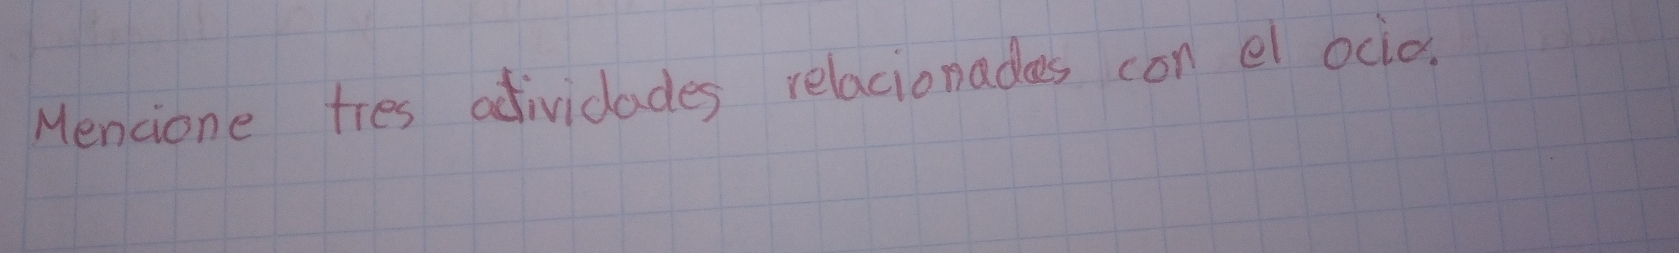 Mencione tres actividades relacionadas con el ocio.